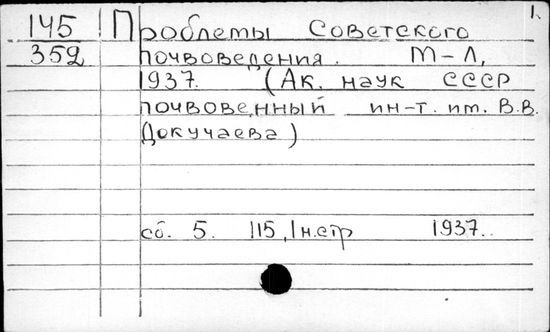 1.
145 Проблемы Советского
352 почвоведения. М-Л,
1937. (Ак. наук СССР
почвове,нный ин-т. им. В.В.
Докучаева)
сб. 5. 115, 1 н.стр 1937..